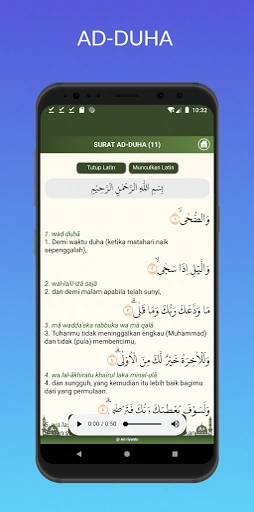 AD-DUHA
10:32
SURAT AD-DUHA (11)
Tutup Latin
Munculkan Latin
بِسْمِ اللّٰهِ الرَّحْمٰنِ الرَّحِيْمِ
وَالضُّحٰىۙ ١
1. waḍ-ḍuḥā
1. Demi waktu duha (ketika matahari naik
sepenggalah),
وَالَّيْلِ اِذَا سَجٰىۙ ٢
2. wal-laili iżā sajā
2. dan demi malam apabila telah sunyi,
مَا وَدَّعَكَ رَبُّكَ وَمَا قَلٰىۗ ٣
3. mā wadda‘aka rabbuka wa mā qalā
3. Tuhanmu tidak meninggalkan engkau (Muhammad)
dan tidak (pula) membencimu,
وَلَلْاٰخِرَةُ خَيْرٌ لَّكَ مِنَ الْاُوْلٰىۗ ٤
4. wa lal-ākhiratu khairul laka minal-ụlā
4. dan sungguh, yang kemudian itu lebih baik bagimu
dari yang permulaan.
وَلَسَوْفَ يُعْطِيْكَ رَبُّكَ فَتَرْضٰىۗ ٥
0:00 / 0:50